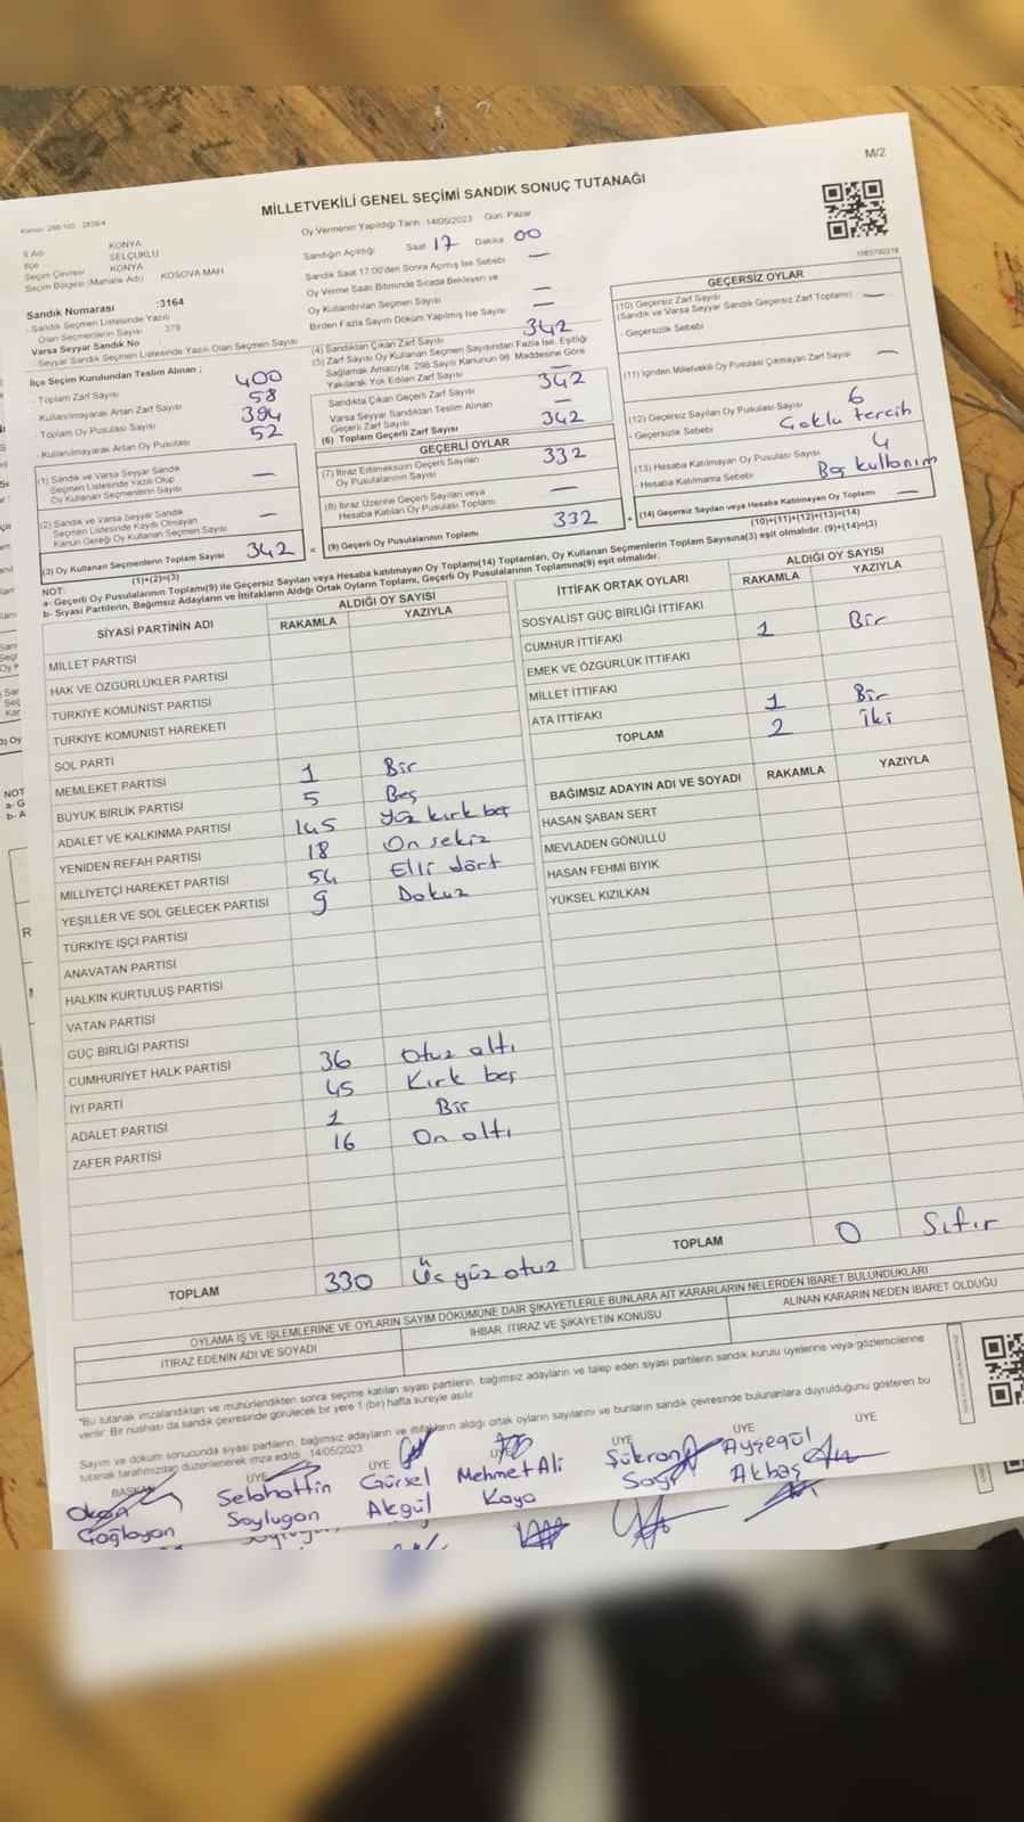 M/2
MİLLETVEKİLİ GENEL SEÇİMİ SANDIK SONUÇ TUTANAĞI
İli Adı KONYA
İlçe SELÇUKLU
Seçim Çevresi KONYA
Seçim Bölgesi (Mahalle Adı) KOSOVA MAH
Sandık Numarası :3164
Sandık Seçmen Listesinde Yazılı
Olan Seçmenlerin Sayısı 379
Varsa Seyyar Sandık No
Seyyar Sandık Seçmen Listesinde Yazılı Olan Seçmen Sayısı
İlçe Seçim Kurulundan Teslim Alınan ;
- Toplam Zarf Sayısı 400
- Kullanılmayarak Artan Zarf Sayısı 58
- Toplam Oy Pusulası Sayısı 394
- Kullanılmayarak Artan Oy Pusulası 52
(1) Sandık ve Varsa Seyyar Sandık
Seçmen Listesinde Yazılı Olup
Oy Kullanan Seçmenlerin Sayısı —
(2) Sandık ve Varsa Seyyar Sandık
Seçmen Listesinde Kayıtlı Olmayan
Kanun Gereği Oy Kullanan Seçmen Sayısı —
(3) Oy Kullanan Seçmenlerin Toplam Sayısı 342
(1)+(2)=(3)
Oy Vermenin Yapıldığı Tarih : 14/05/2023 Gün: Pazar
Sandığın Açıldığı Saat 17 Dakika 00
Sandık Saat 17:00'den Sonra Açılmış İse Sebebi —
Oy Verme Saati Bitiminde Sırada Bekleyen ve
Oy Kullandırılan Seçmen Sayısı —
Birden Fazla Sayım Döküm Yapılmış İse Sayısı —
(4) Sandıktan Çıkan Zarf Sayısı 342
(5) Zarf Sayısı Oy Kullanan Seçmen Sayısından Fazla İse, Eşitliği
Sağlamak Amacıyla, 298 Sayılı Kanunun 98. Maddesine Göre
Yakılarak Yok Edilen Zarf Sayısı —
Sandıkta Çıkan Geçerli Zarf Sayısı 342
Varsa Seyyar Sandıktan Teslim Alınan
Geçerli Zarf Sayısı —
(6) Toplam Geçerli Zarf Sayısı 342
GEÇERLİ OYLAR
(7) İtiraz Edilmeksizin Geçerli Sayılan
Oy Pusulalarının Sayısı 332
(8) İtiraz Üzerine Geçerli Sayılan veya
Hesaba Katılan Oy Pusulası Toplamı —
= (9) Geçerli Oy Pusulalarının Toplamı 332
GEÇERSİZ OYLAR
(10) Geçersiz Zarf Sayısı
(Sandık ve Varsa Seyyar Sandık Geçersiz Zarf Toplamı) —
- Geçersizlik Sebebi
(11) İçinden Milletvekili Oy Pusulası Çıkmayan Zarf Sayısı —
(12) Geçersiz Sayılan Oy Pusulası Sayısı 6
- Geçersizlik Sebebi Çoklu tercih
(13) Hesaba Katılmayan Oy Pusulası Sayısı 4
- Hesaba Katılmama Sebebi Boş kullanım
+ (14) Geçersiz Sayılan veya Hesaba Katılmayan Oy Toplamı —
(10)+(11)+(12)+(13)=(14)
NOT:
a- Geçerli Oy Pusulalarının Toplamı(9) ile Geçersiz Sayılan veya Hesaba katılmayan Oy Toplamı(14) Toplamları, Oy Kullanan Seçmenlerin Toplam Sayısına(3) eşit olmalıdır. (9)+(14)=(3)
b- Siyasi Partilerin, Bağımsız Adayların ve İttifakların Aldığı Ortak Oyların Toplamı, Geçerli Oy Pusulalarının Toplamına(9) eşit olmalıdır.
SİYASİ PARTİNİN ADI ALDIĞI OY SAYISI
RAKAMLA YAZIYLA
MİLLET PARTİSİ
HAK VE ÖZGÜRLÜKLER PARTİSİ
TÜRKİYE KOMÜNİST PARTİSİ
TÜRKİYE KOMÜNİST HAREKETİ
SOL PARTİ
MEMLEKET PARTİSİ 1 Bir
BÜYÜK BİRLİK PARTİSİ 5 Beş
ADALET VE KALKINMA PARTİSİ 145 Yüz kırk beş
YENİDEN REFAH PARTİSİ 18 On sekiz
MİLLİYETÇİ HAREKET PARTİSİ 54 Elli dört
YEŞİLLER VE SOL GELECEK PARTİSİ 9 Dokuz
TÜRKİYE İŞÇİ PARTİSİ
ANAVATAN PARTİSİ
HALKIN KURTULUŞ PARTİSİ
VATAN PARTİSİ
GÜÇ BİRLİĞİ PARTİSİ
CUMHURİYET HALK PARTİSİ 36 Otuz altı
İYİ PARTİ 45 Kırk beş
ADALET PARTİSİ 1 Bir
ZAFER PARTİSİ 16 On altı
TOPLAM 330 Üç yüz otuz
İTTİFAK ORTAK OYLARI ALDIĞI OY SAYISI
RAKAMLA YAZIYLA
SOSYALİST GÜÇ BİRLİĞİ İTTİFAKI
CUMHUR İTTİFAKI 1 Bir
EMEK VE ÖZGÜRLÜK İTTİFAKI
MİLLET İTTİFAKI 1 Bir
ATA İTTİFAKI
TOPLAM 2 İki
BAĞIMSIZ ADAYIN ADI VE SOYADI RAKAMLA YAZIYLA
HASAN ŞABAN SERT
MEVLADEN GÖNÜLLÜ
HASAN FEHMİ BIYIK
YÜKSEL KIZILKAN
TOPLAM 0 Sıfır
OYLAMA İŞ VE İŞLEMLERİNE VE OYLARIN SAYIM DÖKÜMÜNE DAİR ŞİKAYETLERLE BUNLARA AİT KARARLARIN NELERDEN İBARET BULUNDUKLARI
İTİRAZ EDENİN ADI VE SOYADI İHBAR, İTİRAZ VE ŞİKAYETİN KONUSU ALINAN KARARIN NEDEN İBARET OLDUĞU
*Bu tutanak imzalandıktan ve mühürlendikten sonra seçime katılan siyasi partilerin, bağımsız adayların ve talep eden siyasi partilerin sandık kurulu üyelerine veya gözlemcilerine
verilir. Bir nüshası da sandık çevresinde görülecek bir yere 1 (bir) hafta süreyle asılır
Sayım ve döküm sonucunda siyasi partilerin, bağımsız adayların ve ittifakların aldığı ortak oyların sayılarını ve bunların sandık çevresinde bulunanlara duyrulduğunu gösteren bu
tutanak tarafımızdan düzenlenerek imza edildi. 14/05/2023
BAŞKAN ÜYE ÜYE ÜYE ÜYE ÜYE ÜYE
Okan Çağlayan
Selahattin Saylugan
Gürsel Akgül
Mehmet Ali Kaya
Şükran
Ayşegül Akbaş